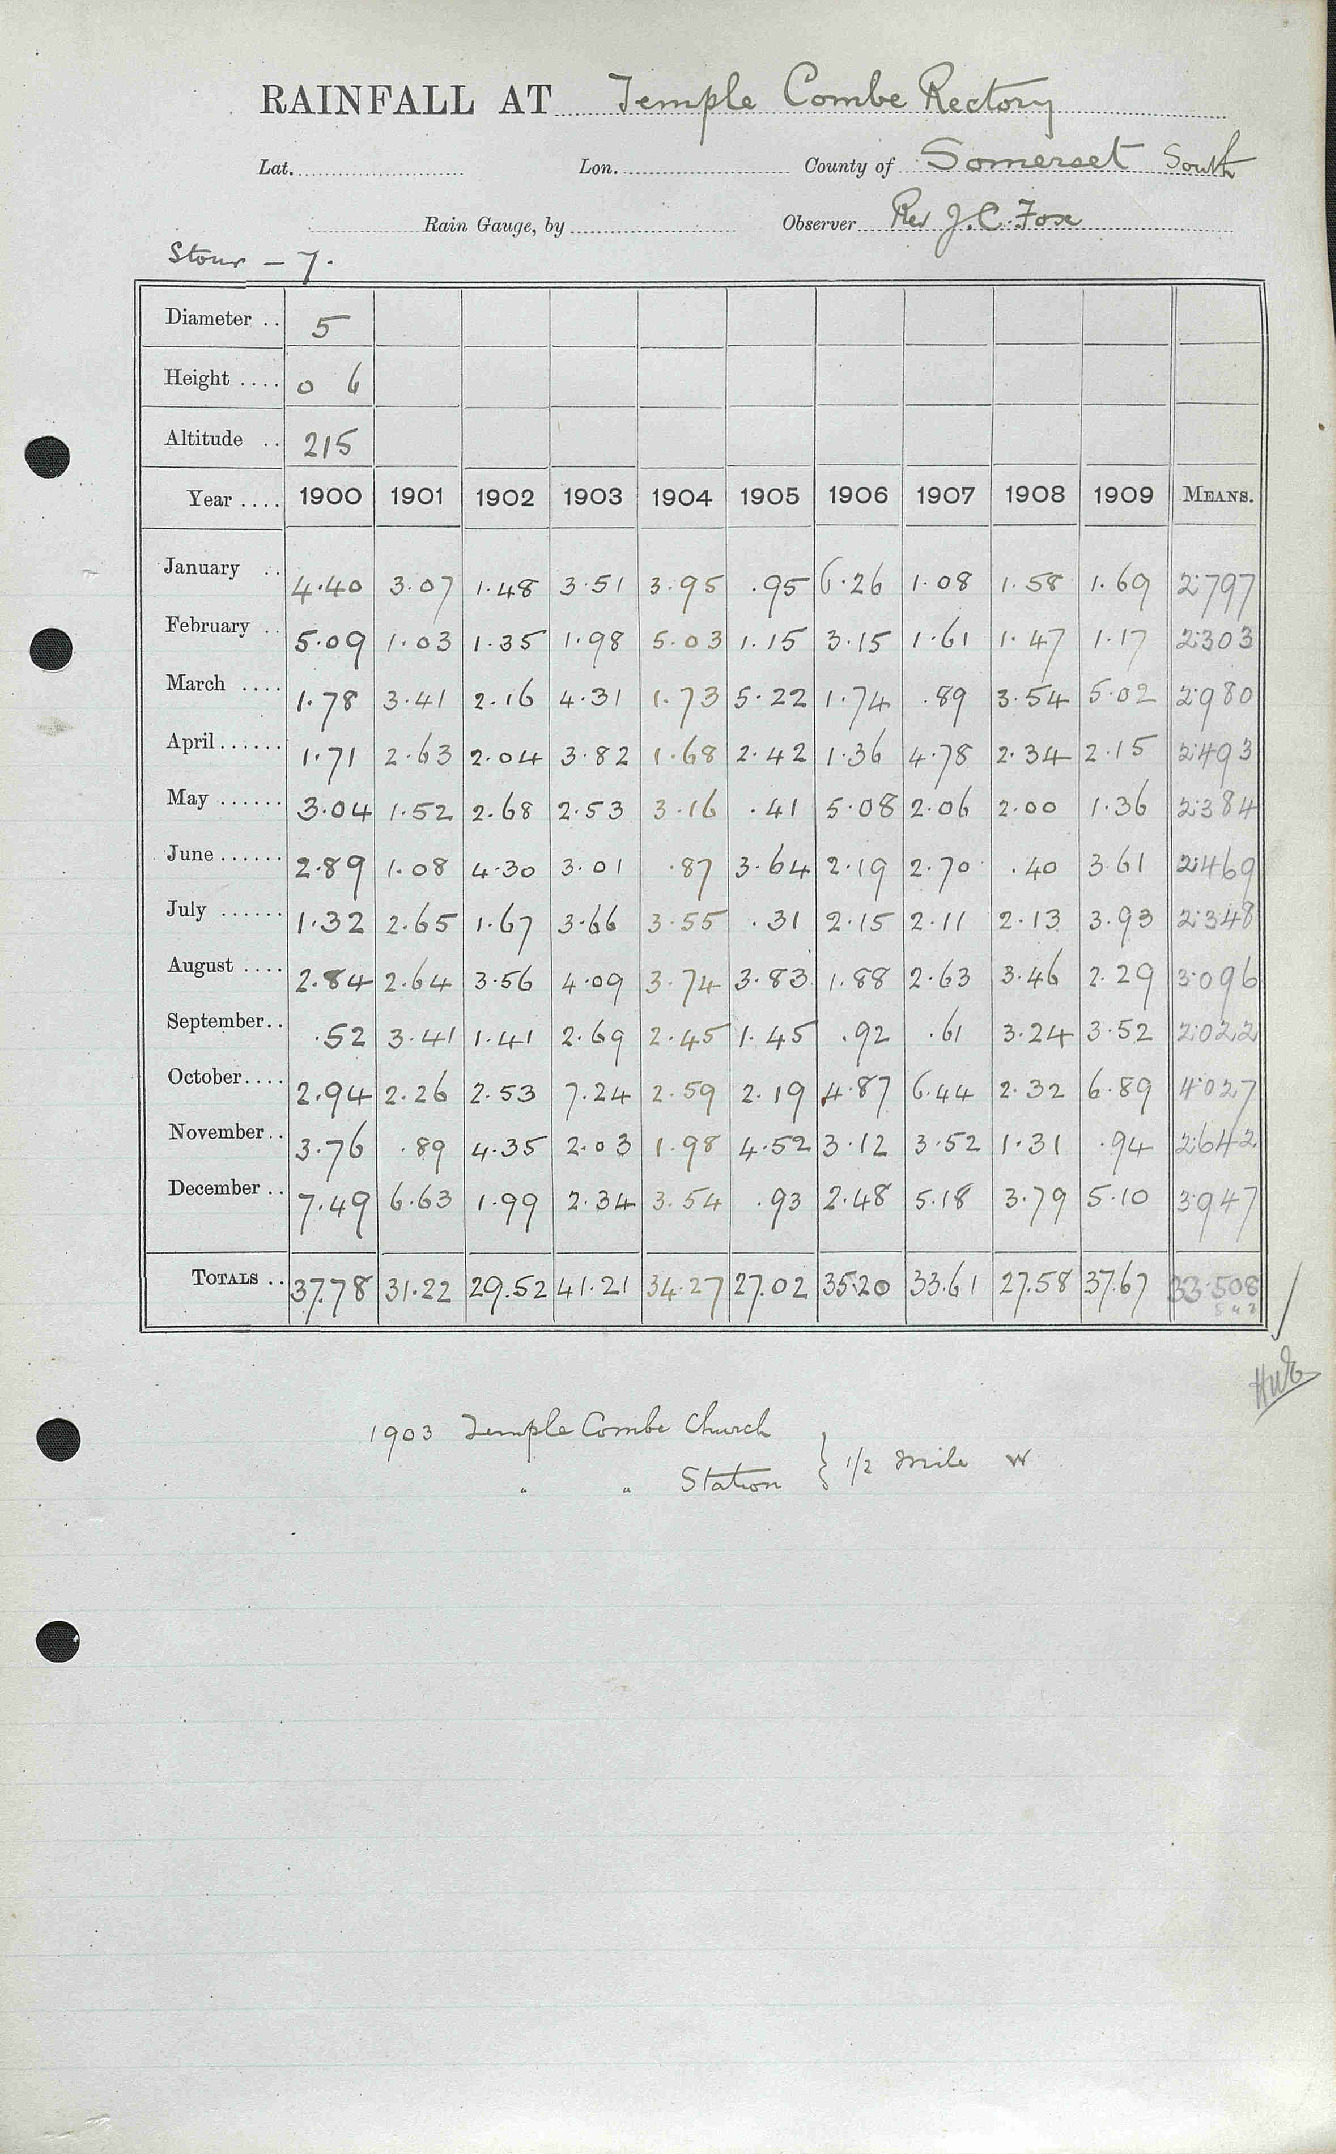 RAINFALL AT Temple Combe Rectory
Lat. Lon. County of Somerset South
Rain Gauge, by Observer Rev J. C. Fox
Stour - 7.
Diameter .. 5
Height .... 0 6
Altitude .. 215
Year .... 1900 1901 1902 1903 1904 1905 1906 1907 1908 1909 MEANS.
January .. 4.40 3.07 1.48 3.51 3.95 .95 6.26 1.08 1.58 1.69 2.797
February .. 5.09 1.03 1.35 1.98 5.03 1.15 3.15 1.61 1.47 1.17 2.303
March .... 1.78 3.41 2.16 4.31 1.73 5.22 1.74 .89 3.54 5.02 2.980
April ...... 1.71 2.63 2.04 3.82 1.68 2.42 1.36 4.78 2.34 2.15 2.493
May ...... 3.04 1.52 2.68 2.53 3.16 .41 5.08 2.06 2.00 1.36 2.384
June ...... 2.89 1.08 4.30 3.01 .87 3.64 2.19 2.70 .40 3.61 2.469
July ...... 1.32 2.65 1.67 3.66 3.55 .31 2.15 2.11 2.13 3.93 2.348
August .... 2.84 2.64 3.56 4.09 3.74 3.83 1.88 2.63 3.46 2.29 3.096
September .. .52 3.41 1.41 2.69 2.45 1.45 .92 .61 3.24 3.52 2.022
October .... 2.94 2.26 2.53 7.24 2.59 2.19 4.87 6.44 2.32 6.89 4.027
November .. 3.76 .89 4.35 2.03 1.98 4.52 3.12 3.52 1.31 .94 2.642
December .. 7.49 6.63 1.99 2.34 3.54 .93 2.48 5.18 3.79 5.10 3.947
TOTALS .. 37.78 31.22 29.52 41.21 34.27 27.02 35.20 33.61 27.58 37.67 33.508
1903 Temple Combe Church
" " Station } 1/2 mile W